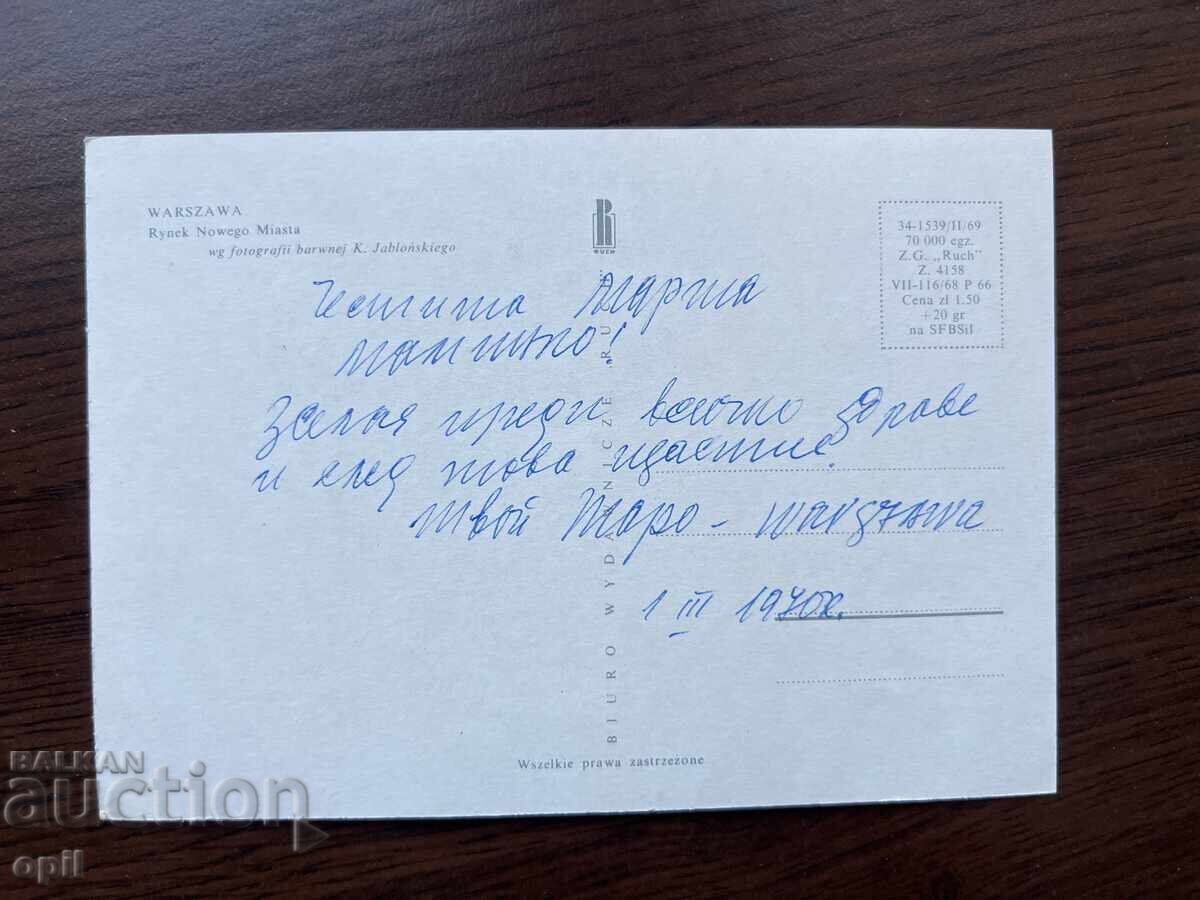 WARSZAWA
Rynek Nowego Miasta
wg fotografii barwnej K. Jabłońskiego
RUCH
34-1539/II/69
70 000 egz.
Z.G. „Ruch"
Z. 4158
VII-116/68 P 66
Cena zł 1.50
+20 gr
na SFBSiI
Честита Марта
мамишко!
Желая преди всичко здраве
и след това щастие.
Твой Жаро – warszawa
1 III 1970г.
BIURO WYDAWNICZE „RUCH"
Wszelkie prawa zastrzeżone
BALKAN
auction
opil